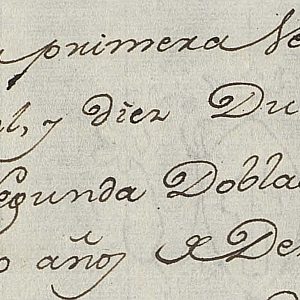 primera Ve
l, y diez Du
Segunda Dobla
o años x De